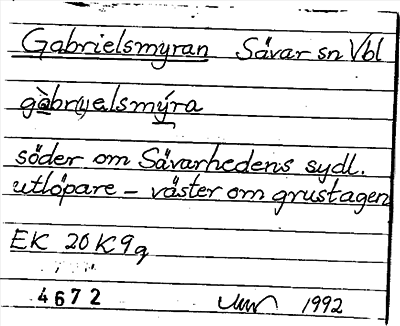 Gabrielsmyran Sävar sn Vbl
gàbri̯elsmýra
söder om Sävarhedens sydl.
utlöpare – väster om grustagen
EK 20K9g
4672 1992